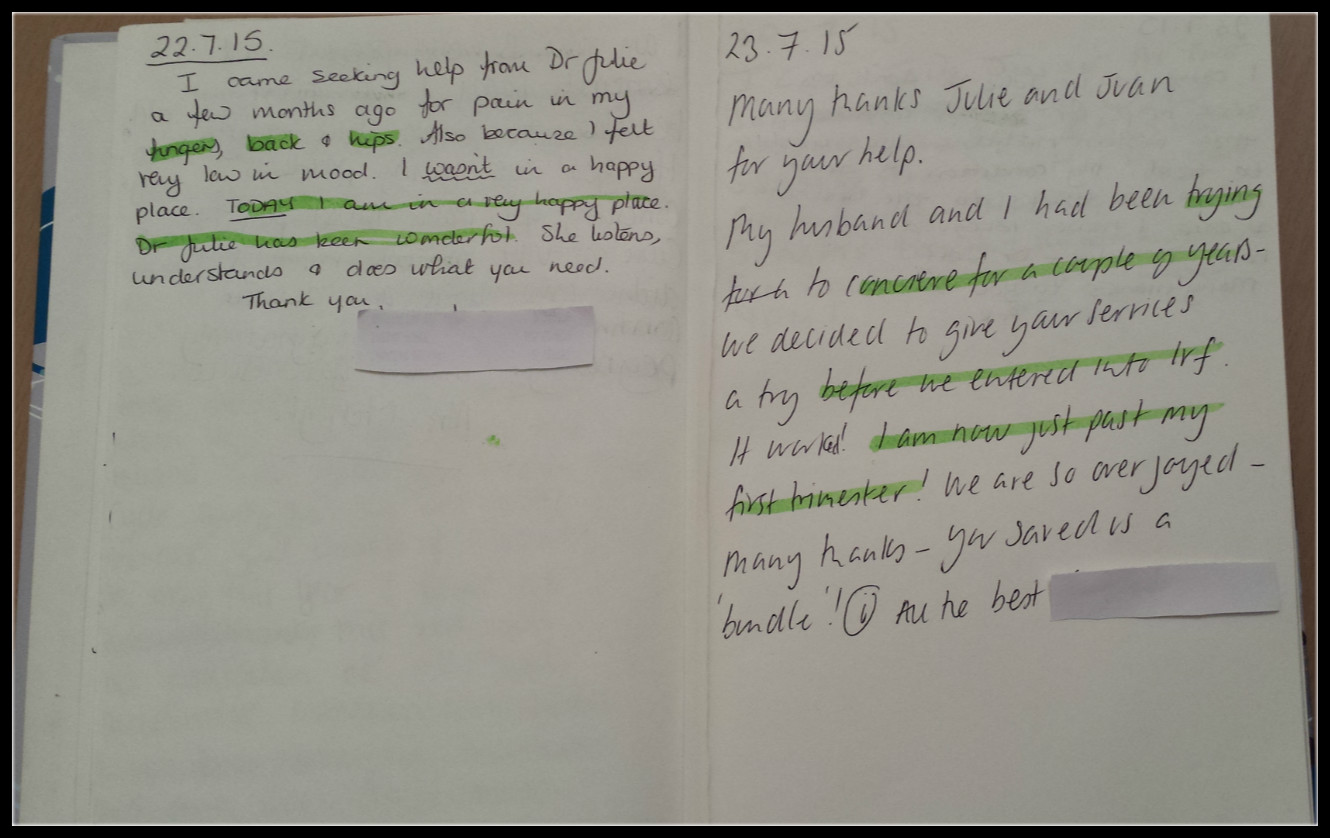 22.7.15.
I came seeking help from Dr Julie
a few months ago for pain in my
fingers, back & hips. Also because I felt
very low in mood. I wasn't in a happy
place. TODAY I am in a very happy place.
Dr Julie has been wonderful. She listens,
understands & does what you need.
Thank you.
23.7.15
Many thanks Julie and Juan
for your help.
My husband and I had been trying
to concieve for a couple of years -
we decided to give your services
a try before we entered into Ivf.
It worked! I am now just past my
first trimester! We are so overjoyed -
many thanks - you saved us a
'bundle'! All the best